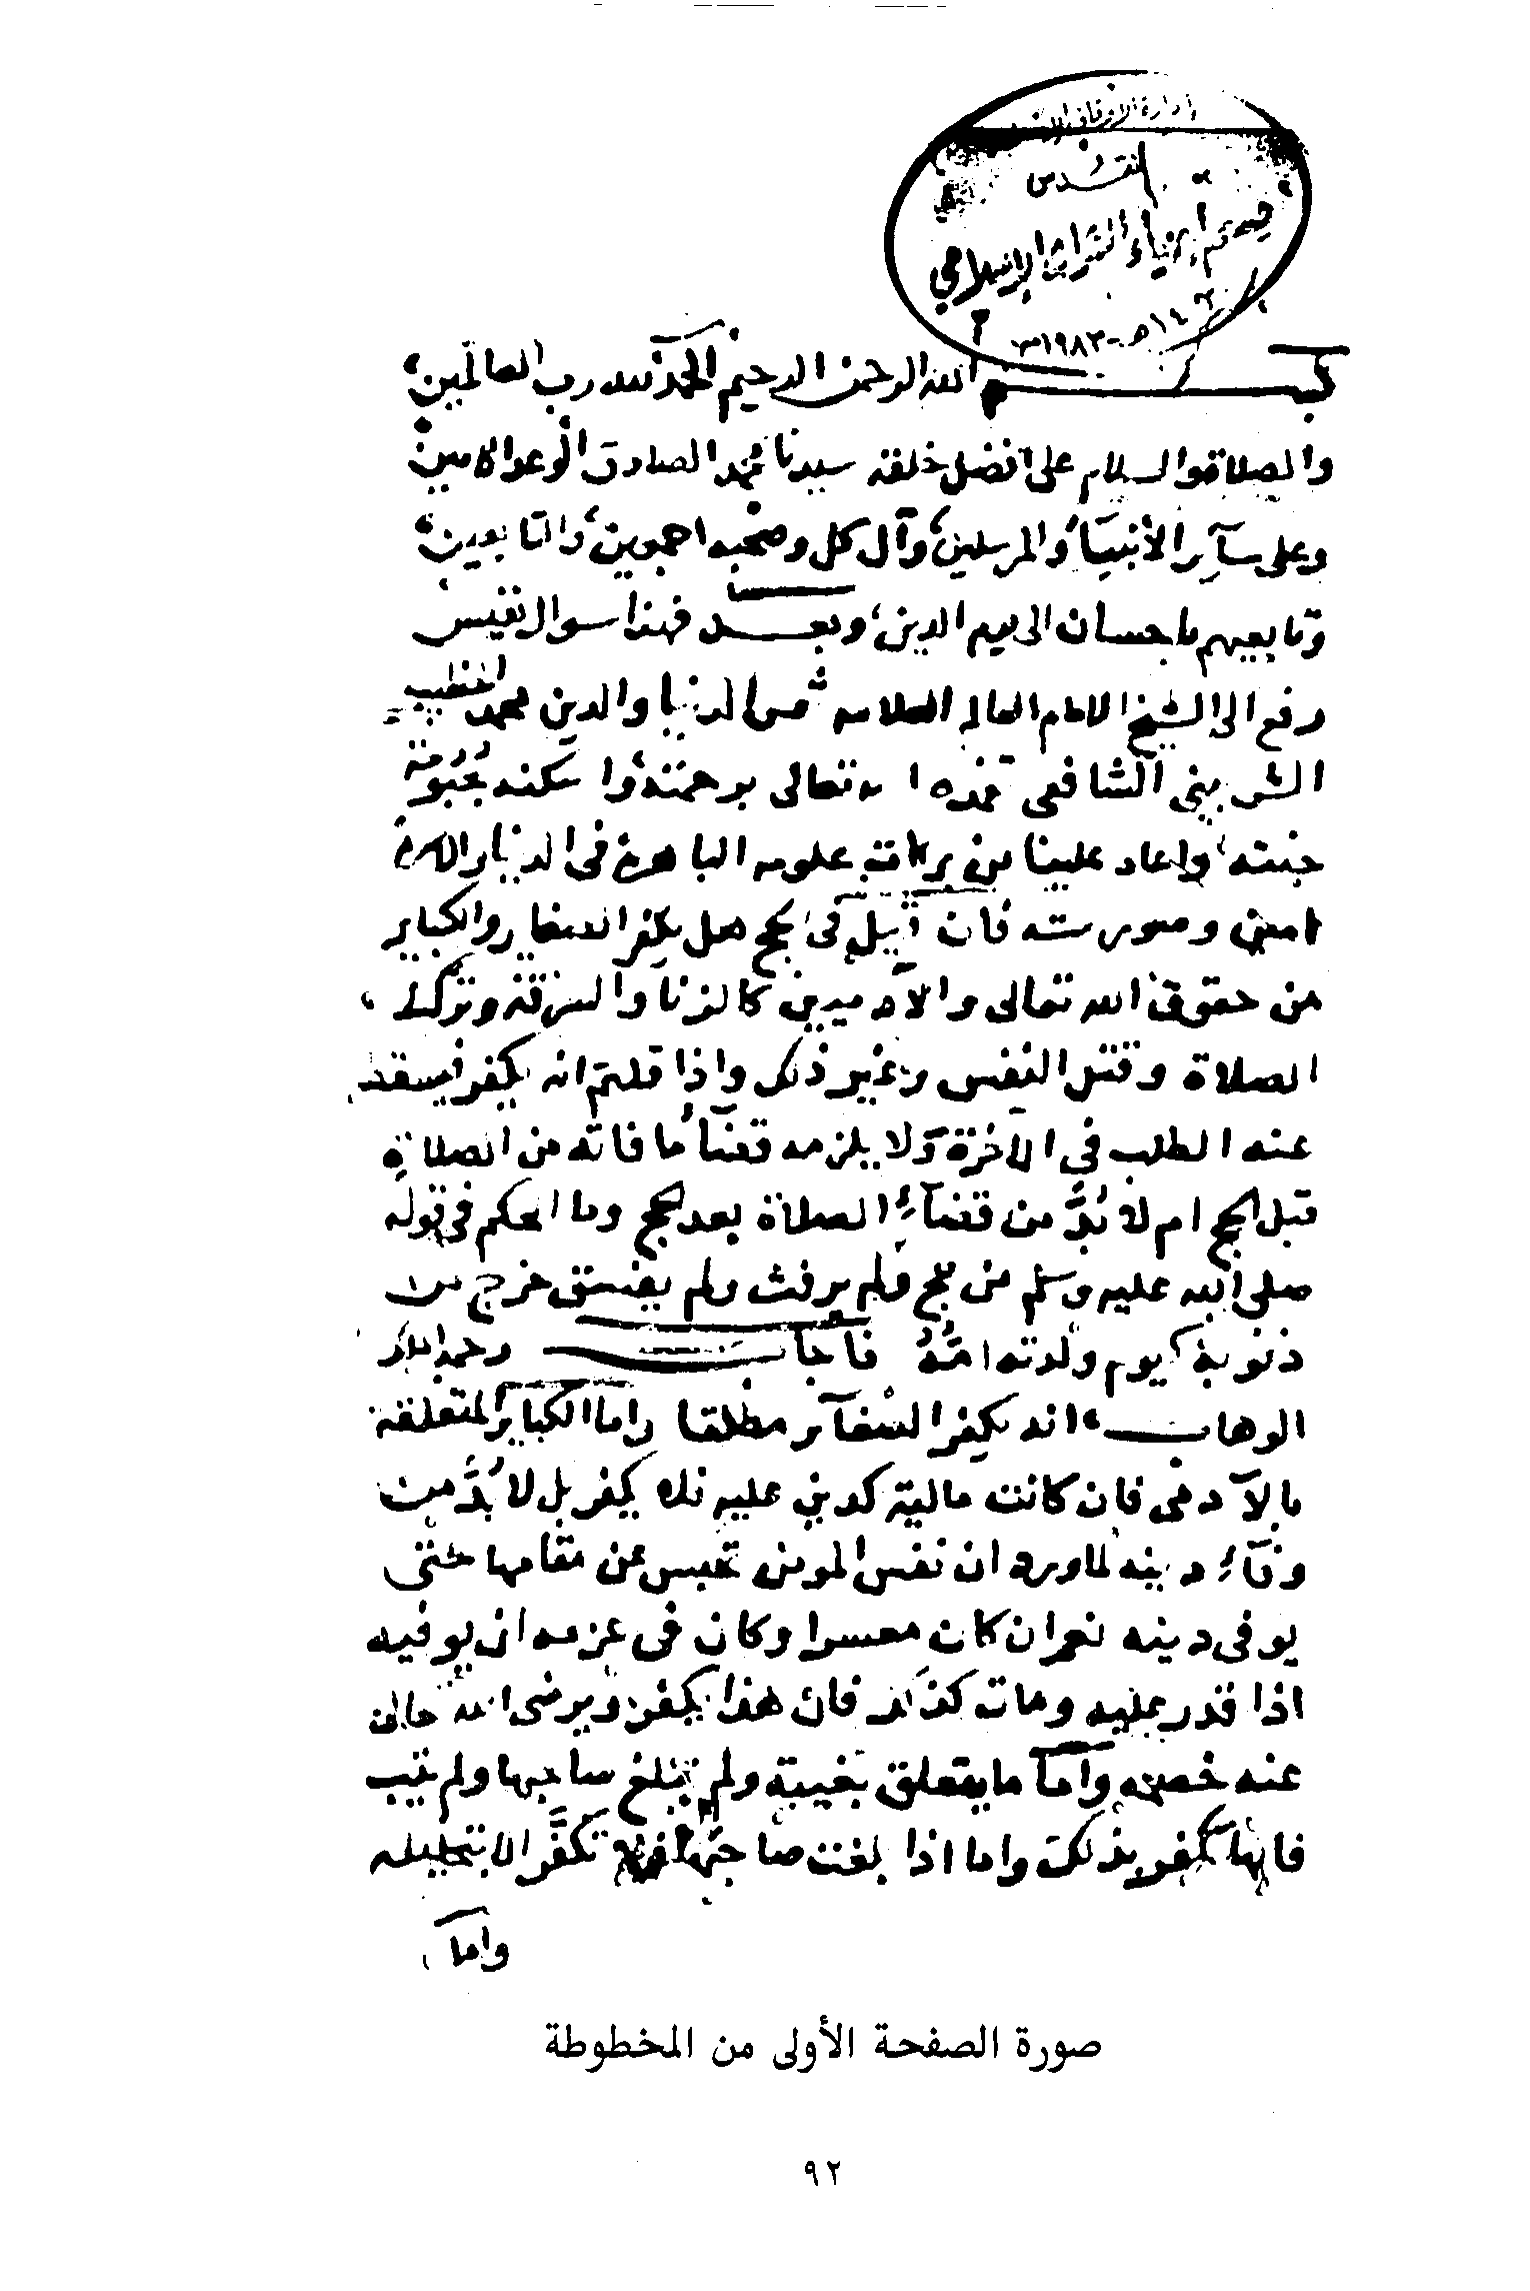 إدارة الأوقاف
القدس
قسم إحياء التراث الإسلامي
١٤٠٣هـ - ١٩٨٣م
بسم الله الرحمن الرحيم الحمد لله رب العالمين،
والصلاة والسلام على افضل خلقه سيدنا محمد الصادق الوعد الامين
وعلى سآير الأنبيآء والمرسلين، وآل كل وصحبه اجمعين، والتابعين،
وتابعيهم باحسان الى يوم الدين، وبعد فهذا سوال نفيس
رفع الى الشيخ الامام العالم العلامه شمس الدنيا والدين محمد الخطيب
الشربيني الشافعي تغمده الله تعالى برحمته، واسكنه بحبوحة
جنته، واعاد علينا من بركات علومه الباهرة في الدنيا والاخرة
امين وصورته فان قيل في الحج هل يكفر الصغاير والكباير
من حقوق الله تعالى والآدميين كالزنا والسرقة وترك
الصلاة وقتل النفس وغير ذلك واذا قلتم انه يكفر فيسقط
عنه الطلب في الآخرة ولا يلزمه قضآء ما فاته من الصلاة
قبل الحج ام لا بُدَّ من قضآء الصلاة بعد الحج وما الحكم في قوله
صلى الله عليه وسلم من حج فلم يرفث ولم يفسق خرج من
ذنوبه كيوم ولدته امُّهُ فأجاب رحمه الملك
الوهاب، انه يكفر الصغآير مطلقا واما الكباير المتعلقة
بالآدمي فان كانت مالية كدين عليه فلا يكفر بل لا بُدَّ من
وفآء دينه لما ورد ان نفس المومن تحبس عن مقامها حتى
يوفى دينه نعم ان كان معسرا وكان في عزمه ان يوفيه
اذا قدر عليه ومات كذلك فان هذا يكفر ويرضى الله تعالى
عنه خصمه وأما ما يتعلق بغيبة ولم تبلغ صاحبها ولم يتب
فانها تكفر بذلك واما اذا بلغت صاحبها فلا تكفَّر الا بتحليله
واما
صورة الصفحة الأولى من المخطوطة
٩٢